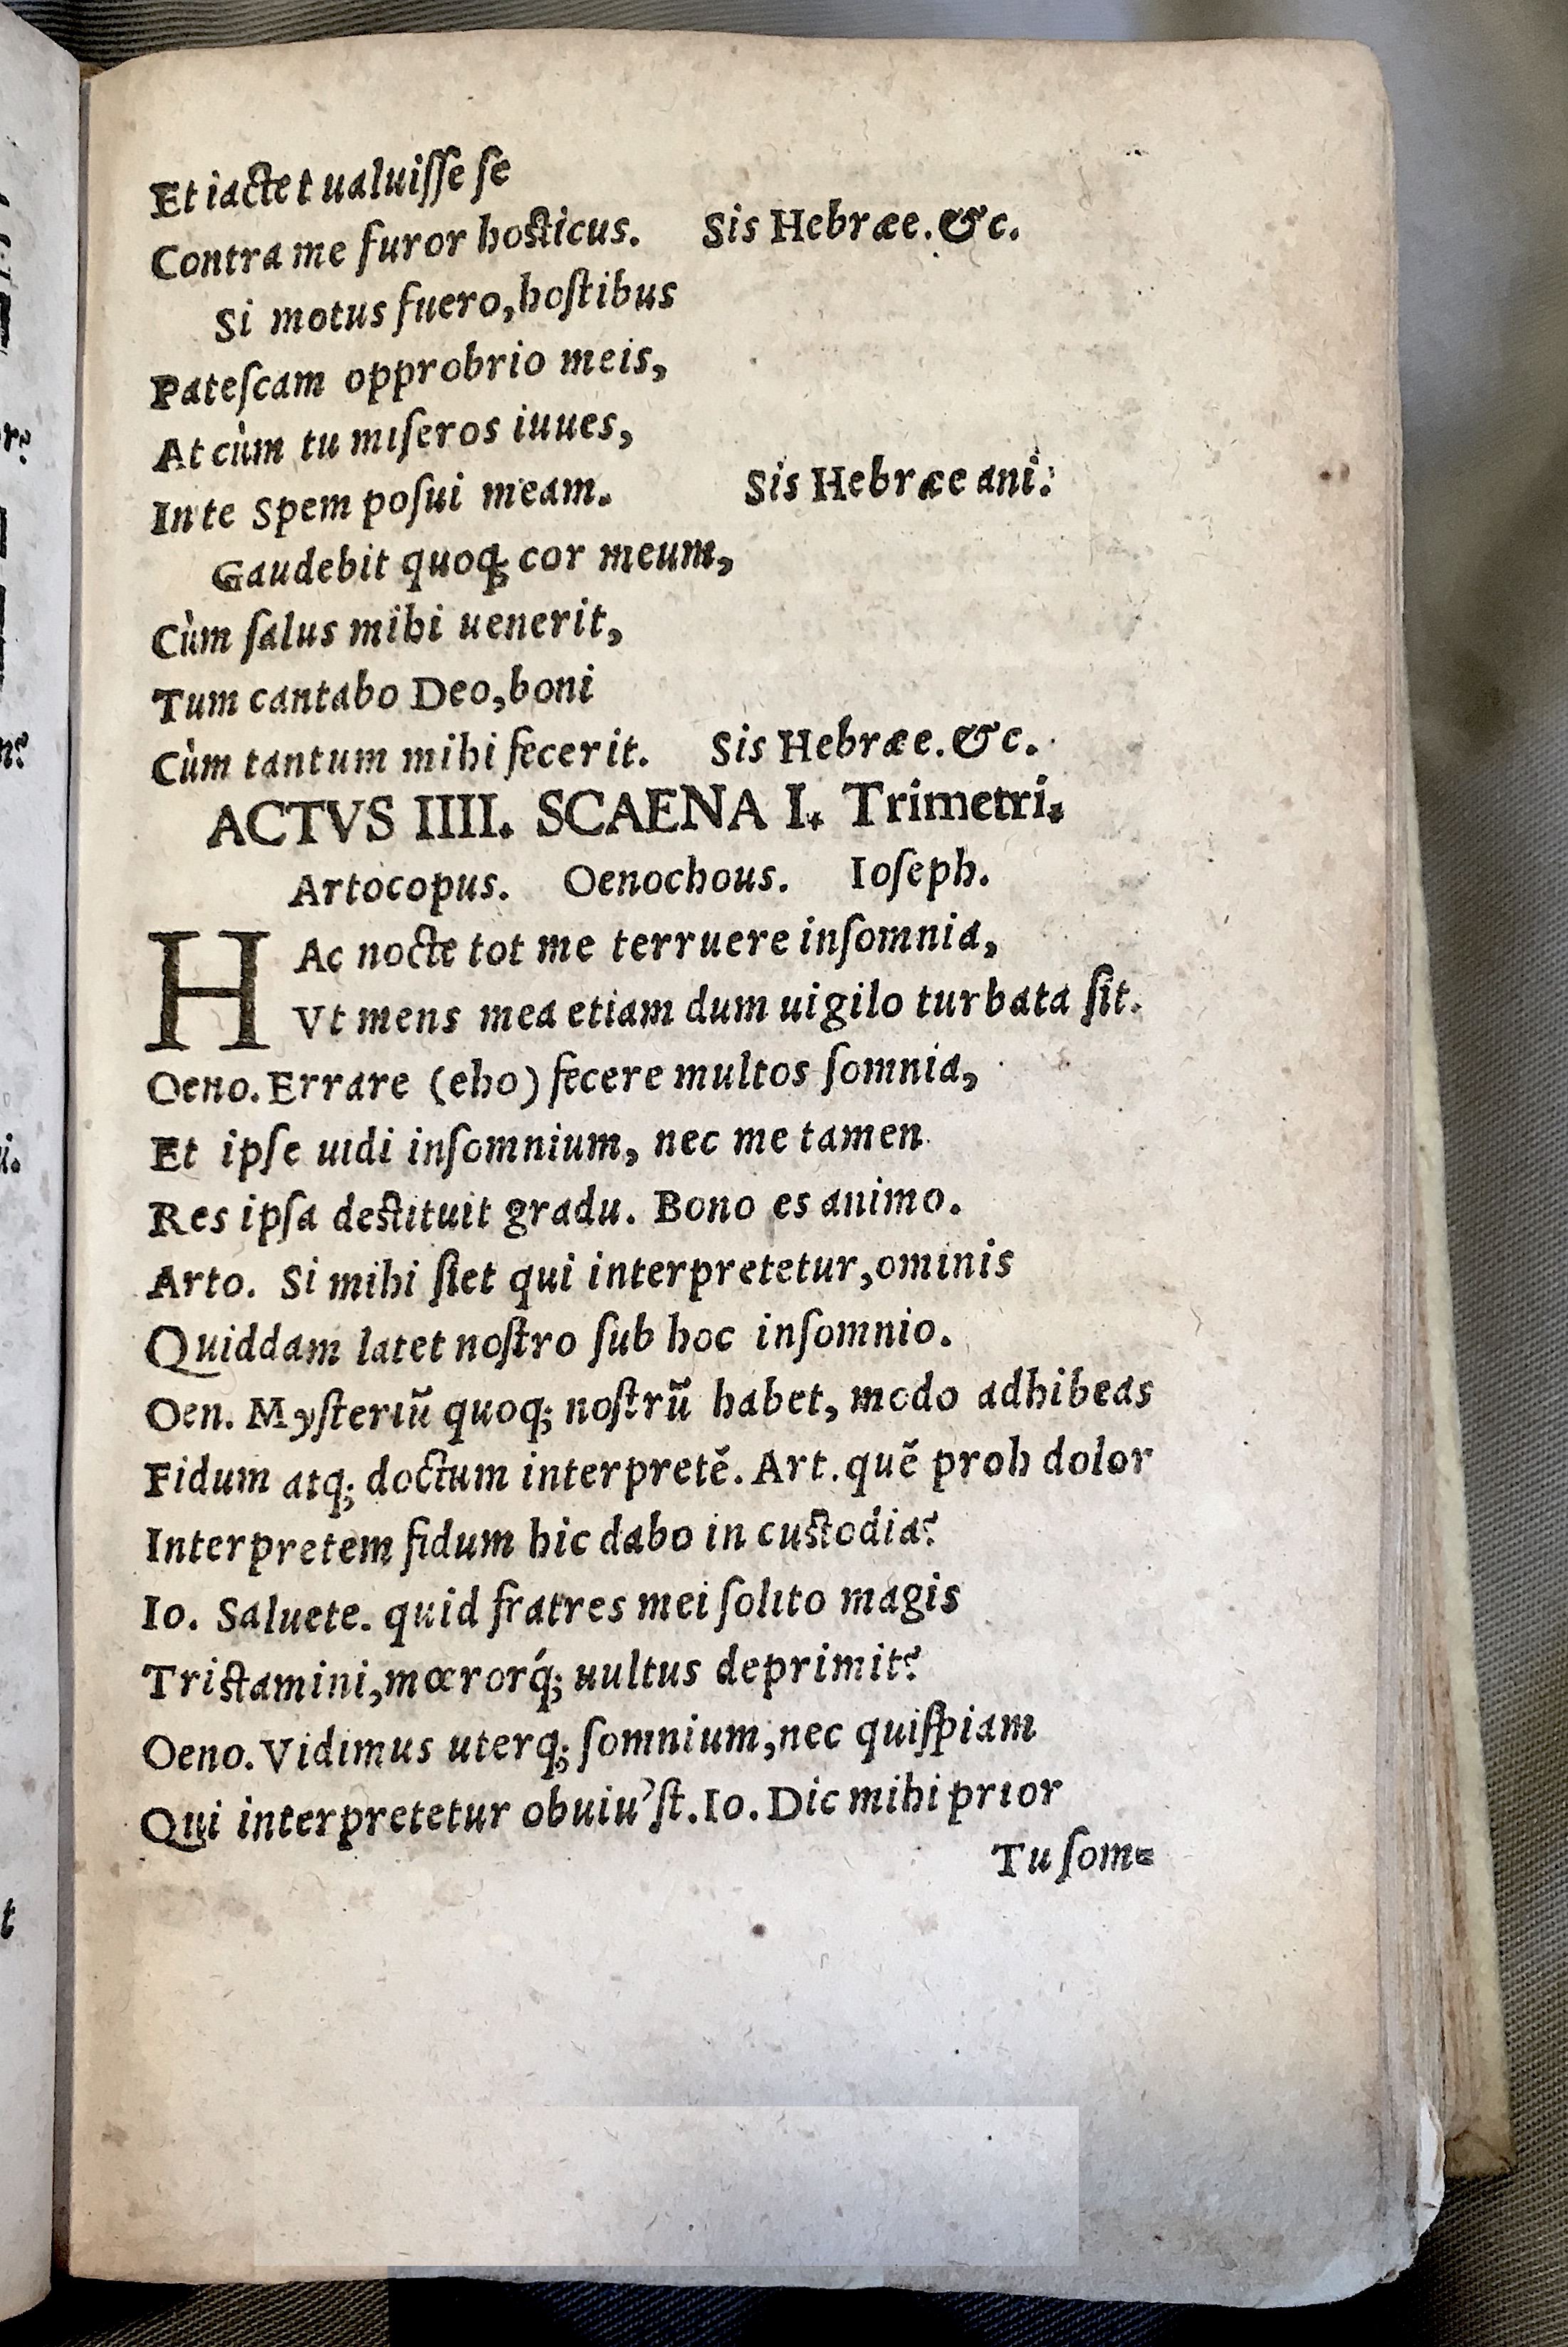 Et iactet ualuiſſe ſe
Contra me furor hoſticus. Sis Hebræe. &c.
Si motus fuero, hoſtibus
Pateſcam opprobrio meis,
At cùm tu miſeros iuues,
In te Spem poſui meam. Sis Hebræe ani:
Gaudebit quoq; cor meum,
Cùm ſalus mihi uenerit,
Tum cantabo Deo, boni
Cùm tantum mihi fecerit. Sis Hebræe. &c.
ACTVS IIII. SCAENA I. Trimetri.
Artocopus. Oenochous. Ioſeph.
HAc nocte tot me terruere inſomnia,
Vt mens mea etiam dum uigilo turbata ſit.
Oeno. Errare (eho) fecere multos ſomnia,
Et ipſe uidi inſomnium, nec me tamen
Res ipſa deſtituit gradu. Bono es animo.
Arto. Si mihi ſiet qui interpretetur, ominis
Quiddam latet noſtro ſub hoc inſomnio.
Oen. Myſteriũ quoq; noſtrũ habet, modo adhibeas
Fidum atq; doctum interpretẽ. Art. quẽ proh dolor
Interpretem fidum hic dabo in cuſtodia?
Io. Saluete. quid fratres mei ſolito magis
Triſtamini, mœrorq́; uultus deprimit?
Oeno. Vidimus uterq; ſomnium, nec quiſpiam
Qui interpretetur obuiu'ſt. Io. Dic mihi prior
Tu ſom⸗